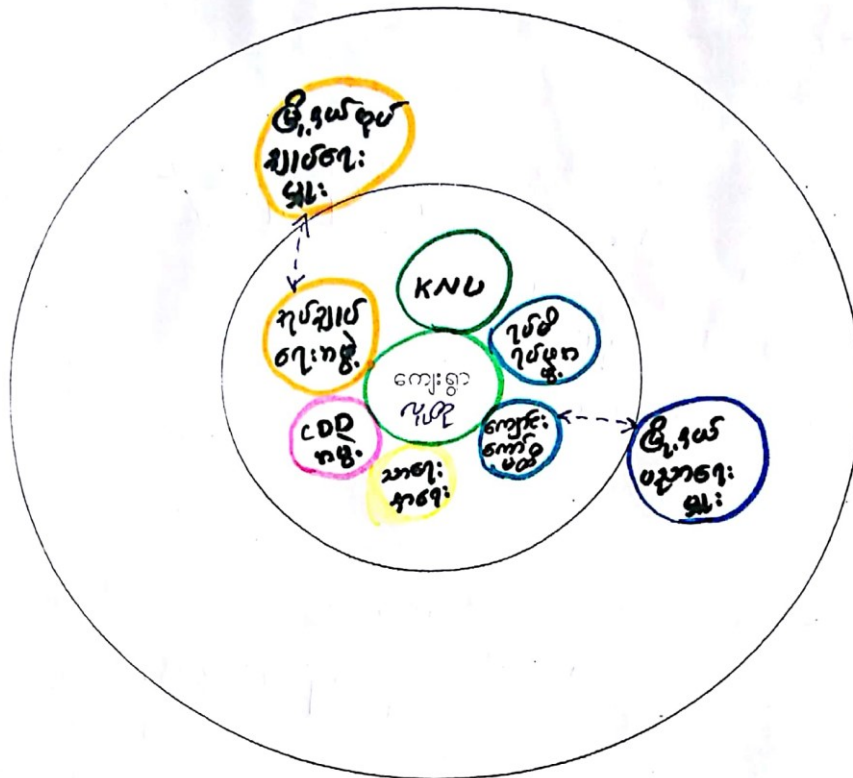 မြို့နယ်အုပ်
ချုပ်ရေး
မှူး
KNU
အုပ်ချုပ်
ရေးအဖွဲ့
ရပ်မိ
ရပ်ဖအ
ဖွဲ့
ကျေးရွာ
လူထု
CDD
အဖွဲ့
သာရေး
နာရေး
ကျောင်း
ကော်မ
တီ
မြို့နယ်
ပညာရေး
မှူး